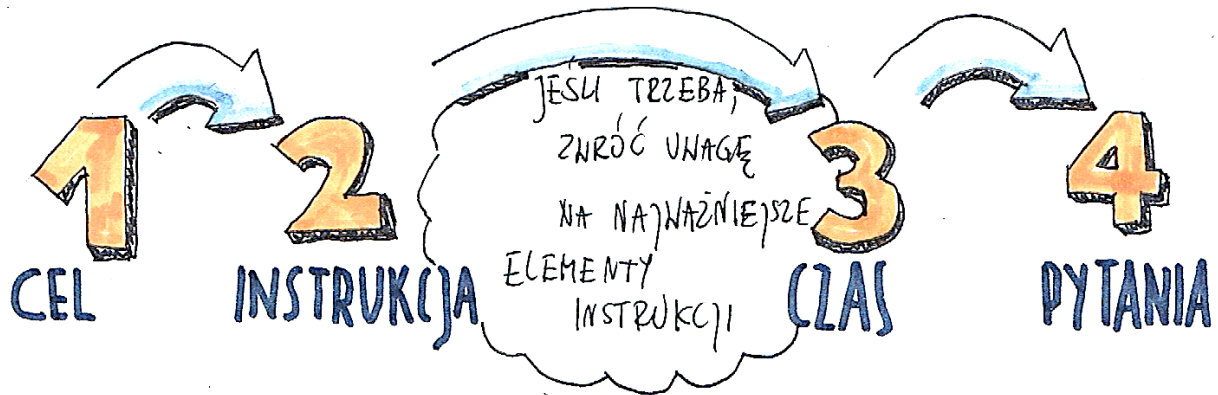 1
CEL
2
INSTRUKCJA
JEŚLI TRZEBA,
ZWRÓĆ UWAGĘ
NA NAJWAŻNIEJSZE
ELEMENTY
INSTRUKCJI
3
CZAS
4
PYTANIA